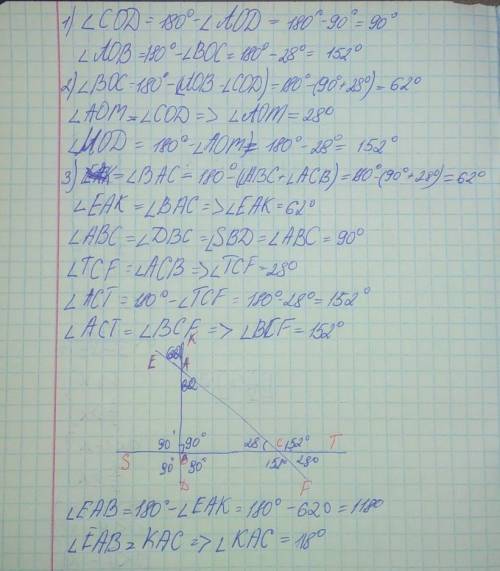 1) ∠COD = 180° - ∠AOD = 180° - 90° = 90°
∠AOB = 180° - ∠BOC = 180° - 28° = 152°
2) ∠BOC = 180° - (AOB - ∠COD) = 180° - (90° + 28°) = 62°
∠AOM = ∠COD => ∠AOM = 28°
∠MOD = 180° - ∠AOM = 180° - 28° = 152°
3) = ∠BAC = 180° - (ABC + ∠ACB) = 180° - (90° + 28°) = 62°
∠EAK = ∠BAC => ∠EAK = 62°
∠ABC = ∠DBC = ∠SBD = ∠ABC = 90°
∠TCF = ∠ACB => ∠TCF = 28°
∠ACT = 180° - ∠TCF = 180° - 28° = 152°
∠ACT = ∠BCF => ∠BCF = 152°
K
E
A
90° 90° 28 C 152° T
S
90° 90° 152° 28°
D F
∠EAB = 180° - ∠EAK = 180° - 62° = 118°
∠EAB = KAC => ∠KAC = 118°